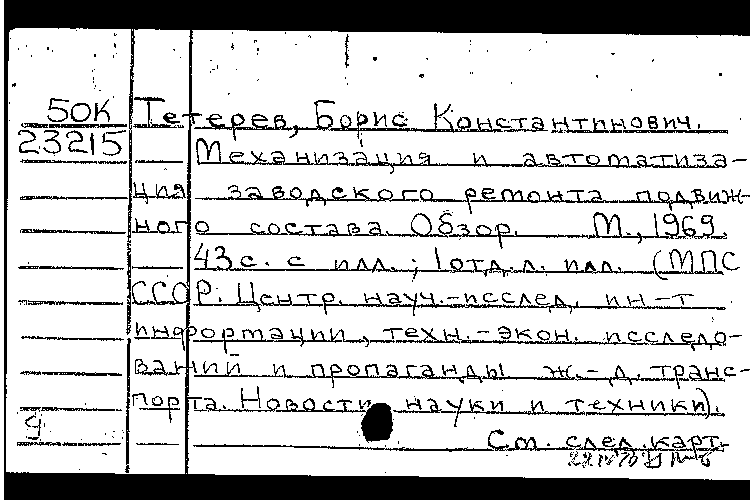 50К Тетерев, Борис Константинович.
23215 Механизация и автоматиза-
ция заводского ремонта подвиж-
ного состава. Обзор. М., 1969.
43 с. с илл.; 1 отд. л. илл. (МПС
СССР. Центр. науч.-исслед. ин-т
информации, техн.-экон. исследо-
ваний и пропаганды ж.-д. транс-
порта. Новости науки и техники).
9 См. след. карт.